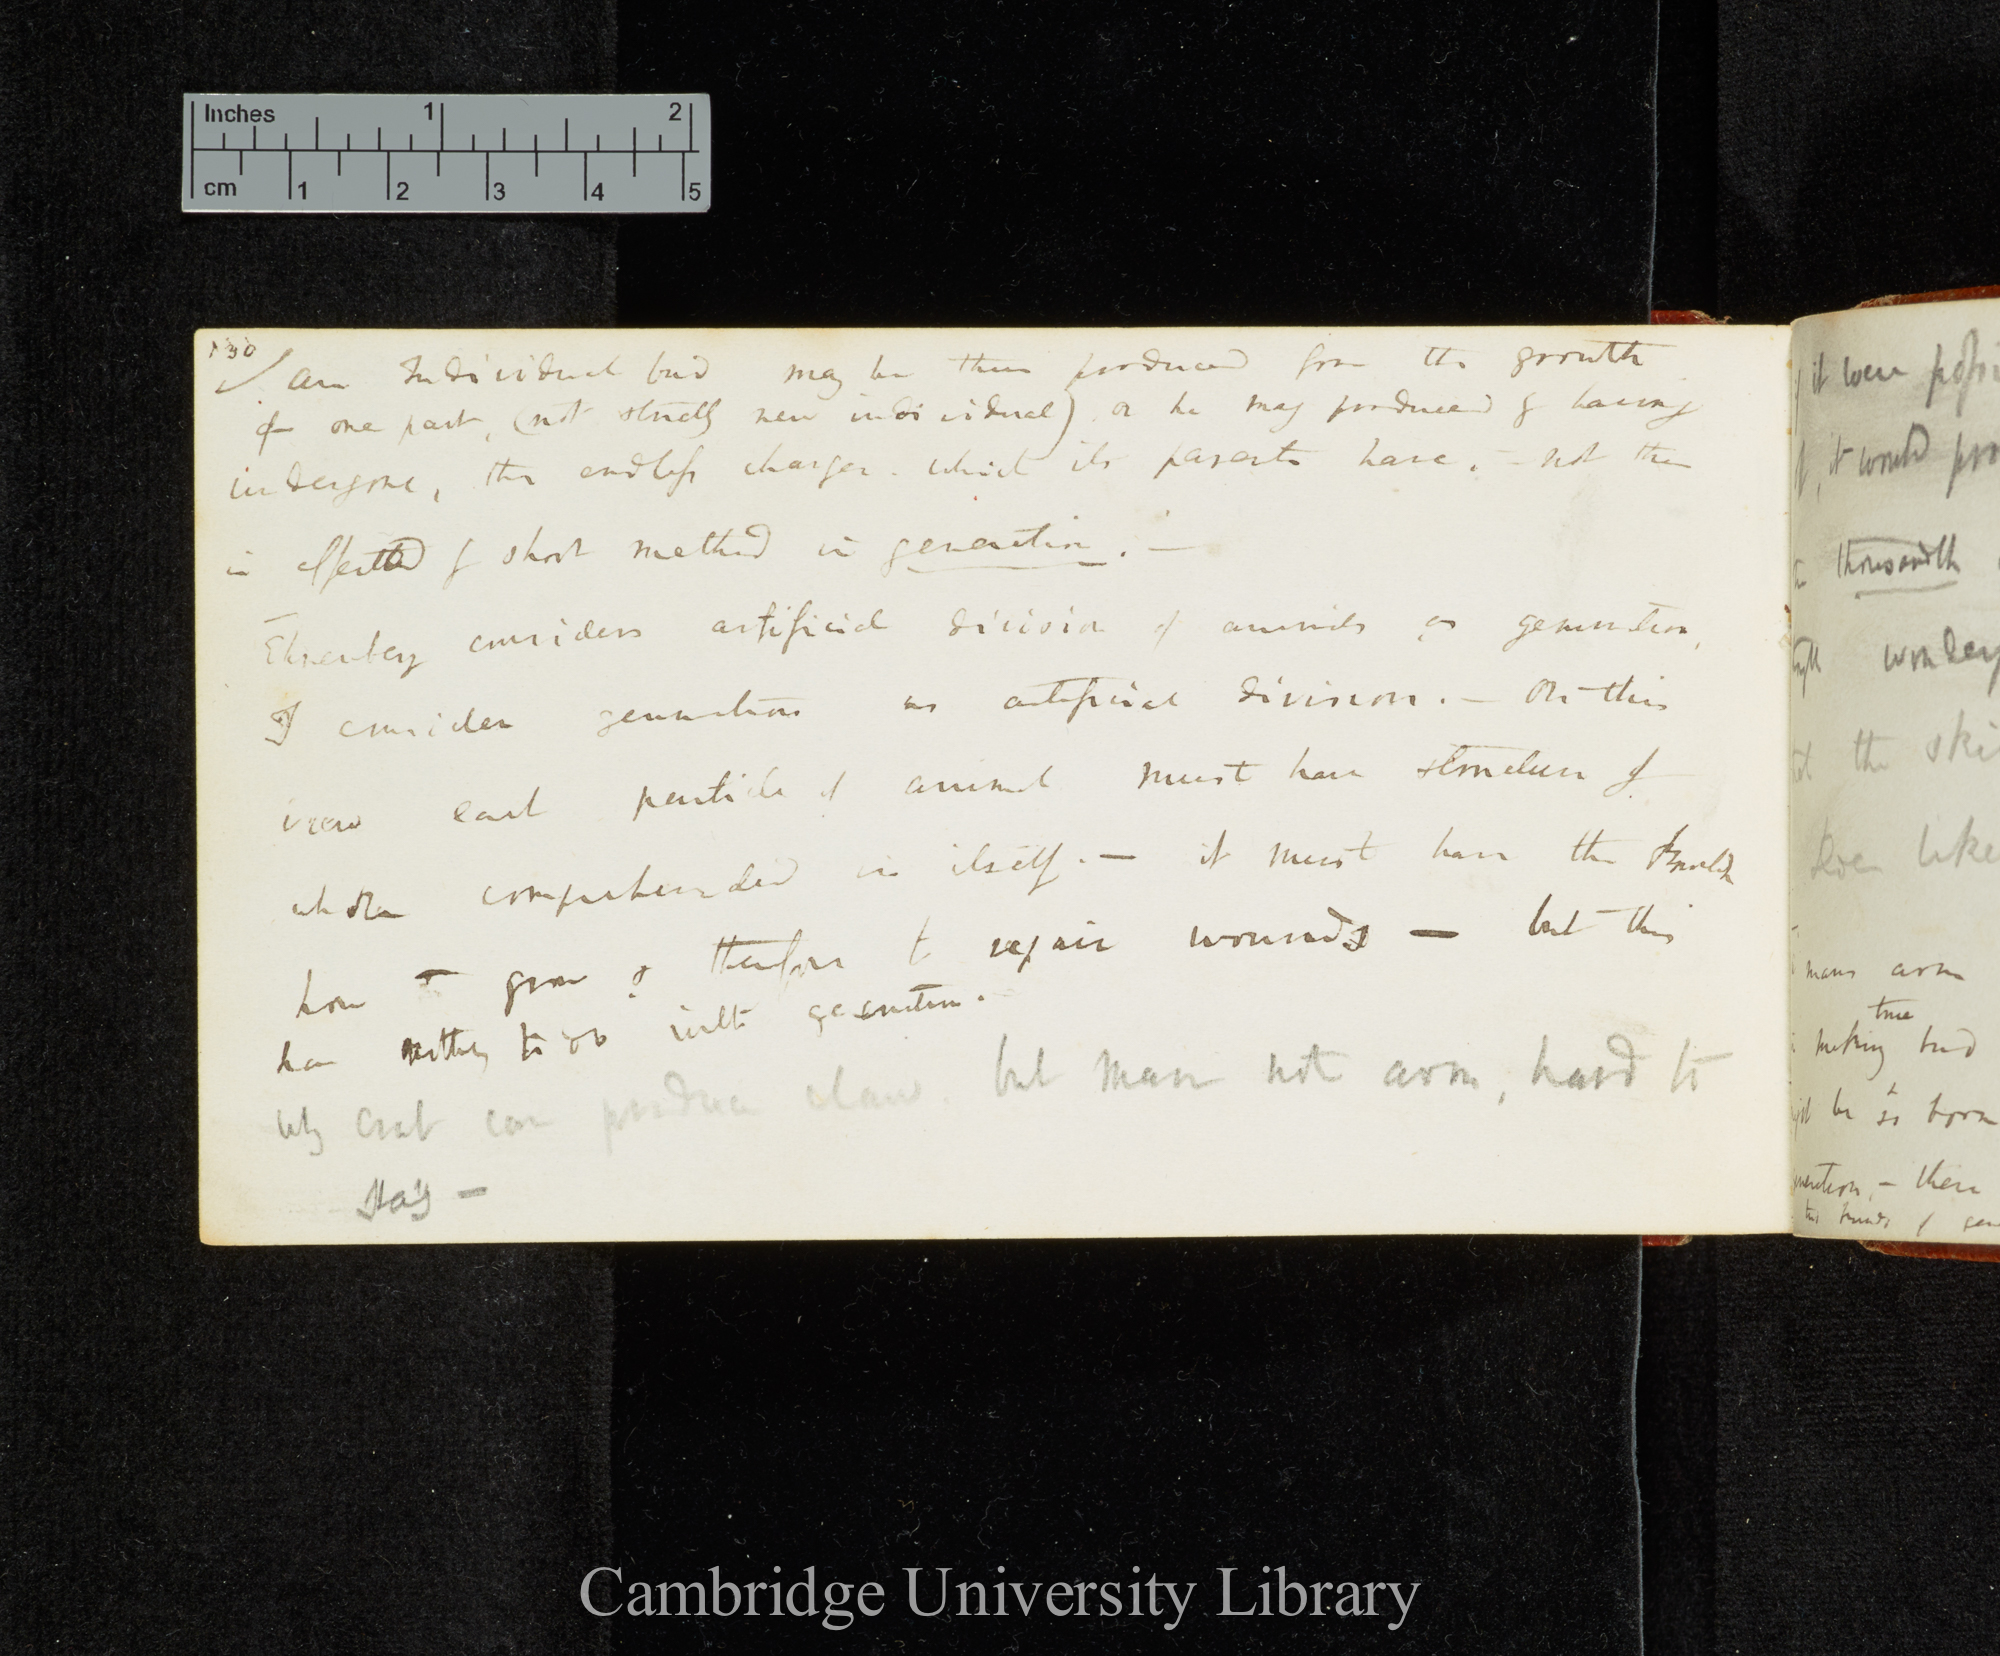 Inches 1 2
cm 1 2 3 4 5
130
an Individual bud may be thus produced from the growth
of one part, (not strictly new individual) or he may produced by having
undergone, the endless changes. which its parents have. — not then
is effected by short method in generation. —
Ehrenberg considers artificial division of animals as generation,
I consider generation as artificial division. — On this
view each particle of animal must have structure of
whole comprehended in itself. — it must have the knowledge
how to grow & therefore to repair wounds — but this
has nothing to do with generation.
Why Crab can produce claw. but man not arm, hard to
say —
it were possi
it would pro
thousandth
wonder
the ski
like
mans arm
true
making bud
be so born
there
Cambridge University Library